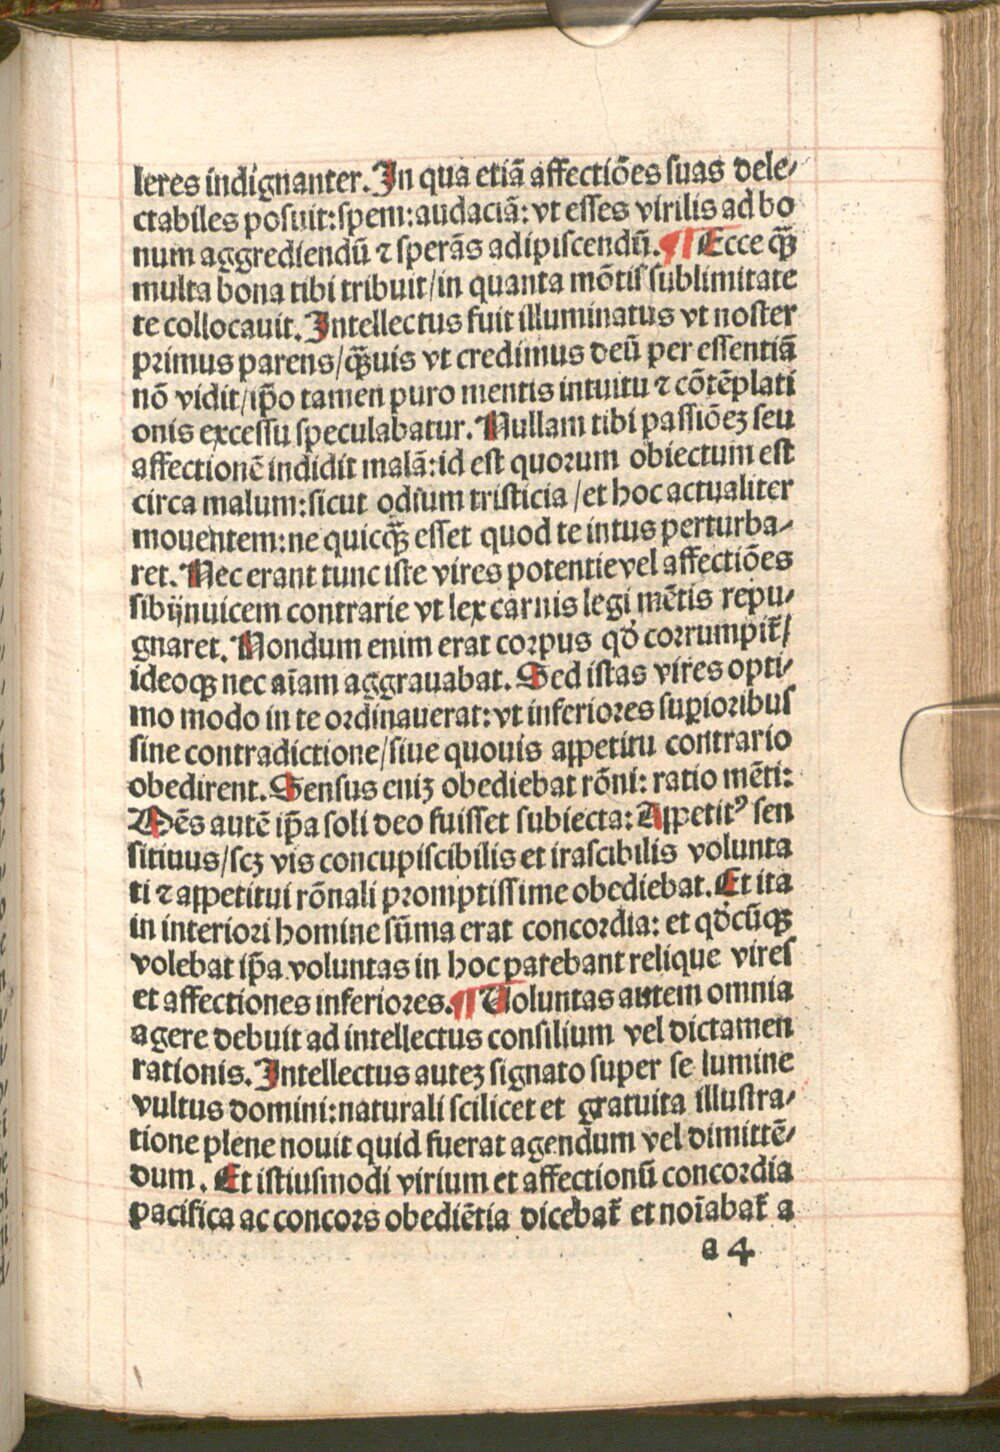 leres indignanter. In qua etiā affectiōes suas dele⸗
ctabiles posuit: spem: audaciā: vt esses virilis ad bo
num aggrediendū ⁊ sperās adipiscendū. ¶ Ecce qȝ̄
multa bona tibi tribuit/in quanta mōtis sublimitate
te collocauit. Intellectus fuit illuminatus vt noster
primus parens/qȝ̄uis vt credimus deū per essentiā
nō vidit/ip̄o tamen puro mentis intuitu ⁊ cōtēplati
onis excessu speculabatur. Nullam tibi passiōeȝ seu
affectionē indidit malā: id est quorum obiectum est
circa malum: sicut odium tristicia/et hoc actualiter
mouentem: ne quicqȝ̄ esset quod te intus perturba⸗
ret. Nec erant tunc iste vires potentie vel affectiōes
sibijnuicem contrarie vt lex carnis legi mētis repu⸗
gnaret. Nondum enim erat corpus qd̓ corrumpit̄/
ideoqȝ nec aīam aggrauabat. Sed istas vires opti⸗
mo modo in te ordinauerat: vt inferiores suꝑioribus
sine contradictione/siue quouis appetitu contrario
obedirent. Sensus eniȝ obediebat rōni: ratio mēti:
Mēs autē ip̄a soli deo fuisset subiecta: Appetitꝰ sen
sitiuus/scȝ vis concupiscibilis et irascibilis volunta
ti ⁊ appetitui rōnali promptissime obediebat. Et ita
in interiori homine sūma erat concordia: et qd̓cūqȝ
volebat ip̄a voluntas in hoc parebant relique vires
et affectiones inferiores. ¶ Voluntas autem omnia
agere debuit ad intellectus consilium vel dictamen
rationis. Intellectus auteȝ signato super se lumine
vultus domini: naturali scilicet et gratuita illustra⸗
tione plene nouit quid fuerat agendum vel dimittē⸗
dum. Et istiusmodi virium et affectionū concordia
pacifica ac concors obediētia dicebat̄ et noīabat̄ a
a 4